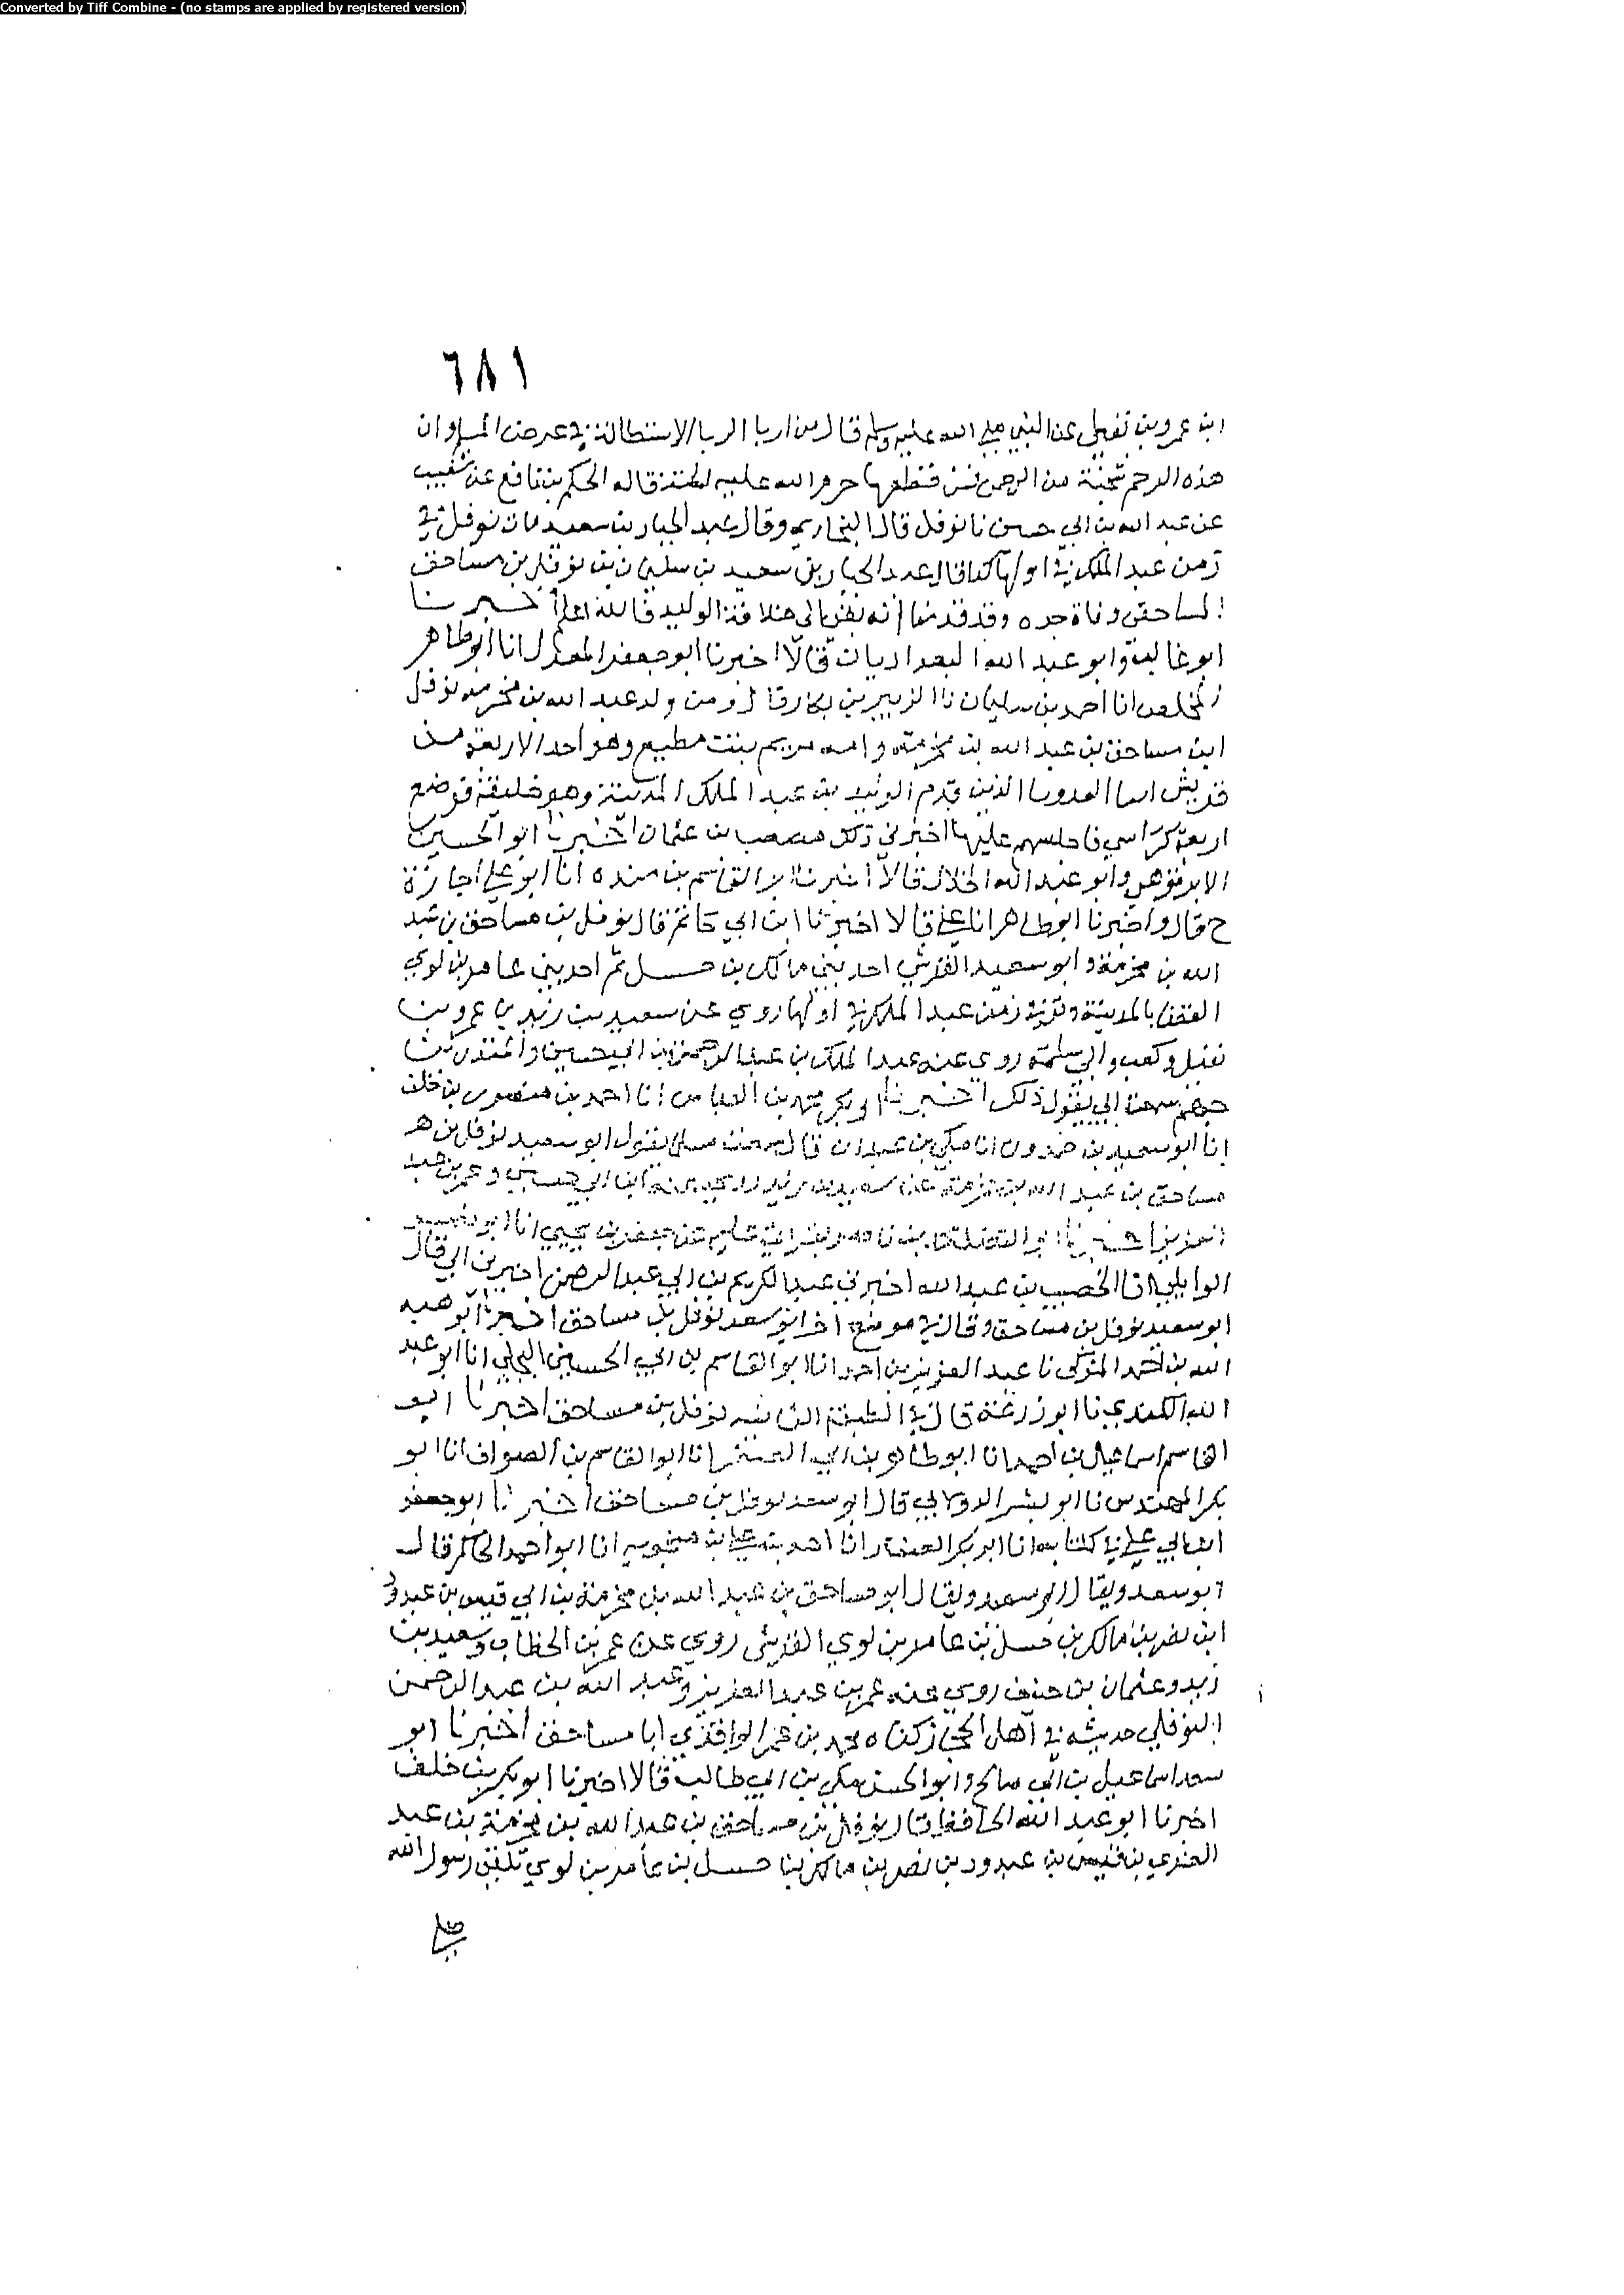 Converted by Tiff Combine - (no stamps are applied by registered version)
٦٨١
ابن عمرو بن نفيل عن النبي صلى الله عليه وسلم قال من اربا الربا الاستطالة في عرض المسلم وان
هذه الرحم شجنة من الرحمن فمن قطعها حرم الله عليه الجنة قاله الحكم بن نافع عن شعيب
عن عبد الله بن ابي حسين نا نوفل قال البخاري وقال عبد الجبار بن سعيد مات نوفل في
زمن عبد الملك في اولها كذا قال عبد الجبار بن سعيد بن سليمان بن نوفل بن مساحق
المساحقي وفاة جده وقد قدمنا انه بقي الى خلافة الوليد فالله اعلم أخبرنا
ابو غالب وابو عبد الله البغداديان قالا اخبرنا ابو جعفر المعدل انا ابو طاهر
المخلص انا احمد بن سليمان نا الزبير بن بكار قال ومن ولد عبد الله بن مخرمة نوفل
ابن مساحق بن عبد الله بن مخرمة وامه مريم بنت مطيع وهو احد الاربعة من
قريش الذين قدم الوليد بن عبد الملك المدينة وهو خليفة فوضع
اربعة كراسي فاجلسهم عليها اخبرني ذلك مصعب بن عثمان اخبرنا ابو الحسين
الابرقوهي وابو عبد الله الخلال قالا اخبرنا ابو القاسم بن منده انا ابو علي اجازة
ح قال واخبرنا ابو طاهر انا علي قالا اخبرنا ابن ابي حاتم قال نوفل بن مساحق بن عبد
الله بن مخرمة وابو سعيد القرشي احد بني مالك بن حسل ثم احد بني عامر بن لوي
القضا بالمدينة وتوفي زمن عبد الملك في اولها روي عن سعيد بن زيد بن عمرو بن
نفيل وكعب وابي سلمة روي عنه عبد الملك بن عبد الرحمن بن ابي حسين
سمعت ابي يقول ذلك اخبرنا ابو بكر محمد بن العباس انا احمد بن منصور بن خلف
انا ابو سعيد بن حمدون انا مكي بن عبدان قال سمعت مسلما يقول ابو سعيد نوفل بن هر
مساحق بن عبد الله بن مخرمة عن سعيد بن زيد روي عنه ابن ابي حسين وعمر بن عبد
العزيز اخبرنا ابو الفضل بن ناصر بقراتي عليه عن جعفر بن يحيى انا ابو نصر
الوايلي انا الخصيب بن عبد الله اخبرني عبد الكريم بن ابي عبد الرحمن اخبرني ابي قال
ابو سعيد نوفل بن مساحق وقال في موضع اخر ابو سعد نوفل بن مساحق اخبرنا ابو محمد
الله بن احمد المزكى نا عبد العزيز بن احمد انا ابو القاسم بن ابي الحسين البجلي انا ابو عبد
الله الكندي نا ابو زرعة قال في الطبقة الثانية نوفل بن مساحق اخبرنا ابو
القاسم اسماعيل بن احمد انا ابو طاهر بن ابي الصقر انا ابو القاسم بن الصواف انا ابو
بكر المهندس نا ابو بشر الدولابي قال ابو سعد نوفل بن مساحق اخبرنا ابو جعفر
ابن ابي علي في كتابه انا ابو بكر الصفار انا احمد بن علي بن منجويه انا ابو احمد الحاكم قال
ابو سعد ويقال ابو سعيد ويقال ابو مساحق بن عبد الله بن مخرمة بن ابي قيس بن عبد ود
ابن نصر بن مالك بن حسل بن عامر بن لوي القرشي روي عن عمر بن الخطاب وسعيد بن
زيد وعثمان بن حنيف روي عنه عمر بن عبد العزيز وعبد الله بن عبد الرحمن
النوفلي حديثه في اهل الحجاز كناه محمد بن عمر الواقدي ابا مساحق اخبرنا ابو
سعد اسماعيل بن ابي صالح وابو الحسن مكي بن ابي طالب قالا اخبرنا ابو بكر بن خلف
اخبرنا ابو عبد الله الحافظ قال نوفل بن مساحق بن عبد الله بن مخرمة بن عبد
العزي بن قيس بن عبد ود بن نصر بن مالك بن حسل بن عامر بن لوي رسول الله
صلى